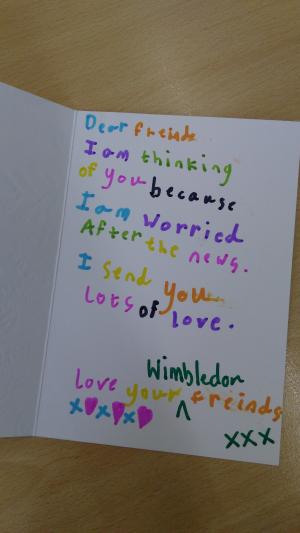 Dear freinds
I am thinking
of you because
I am worried
After the news.
I send you
Lots of love.
Wimbledon
Love your ^ freinds
x♥x♥x♥
xxx